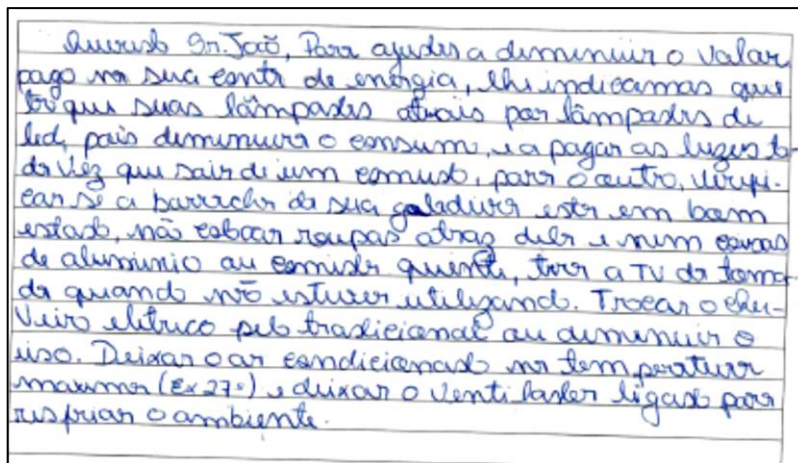 Querido Sr. João, Para ajudar a demenuir o valor
pago na sua conta de energia, lhe indicamos que
troque suas lâmpadas atuais por lâmpadas de
led, pois demenuira o consumo, e a pagar as luzes to-
da vez que sair de um comodo, para o outro, verifi-
car se a barracha da sua geladeira esta em bom
estado, não colocar roupas atraz dela e nem coisas
de alumínio ou comida quente, tirar a TV da toma-
da quando não estiver utilizando. Trocar o chu-
veiro elétrico pelo tradicional ou demenuir o
uso. Deixar o ar condicionado na temperatura
maxima (Ex 27°) e deixar o ventilador ligado para
resfriar o ambiente.